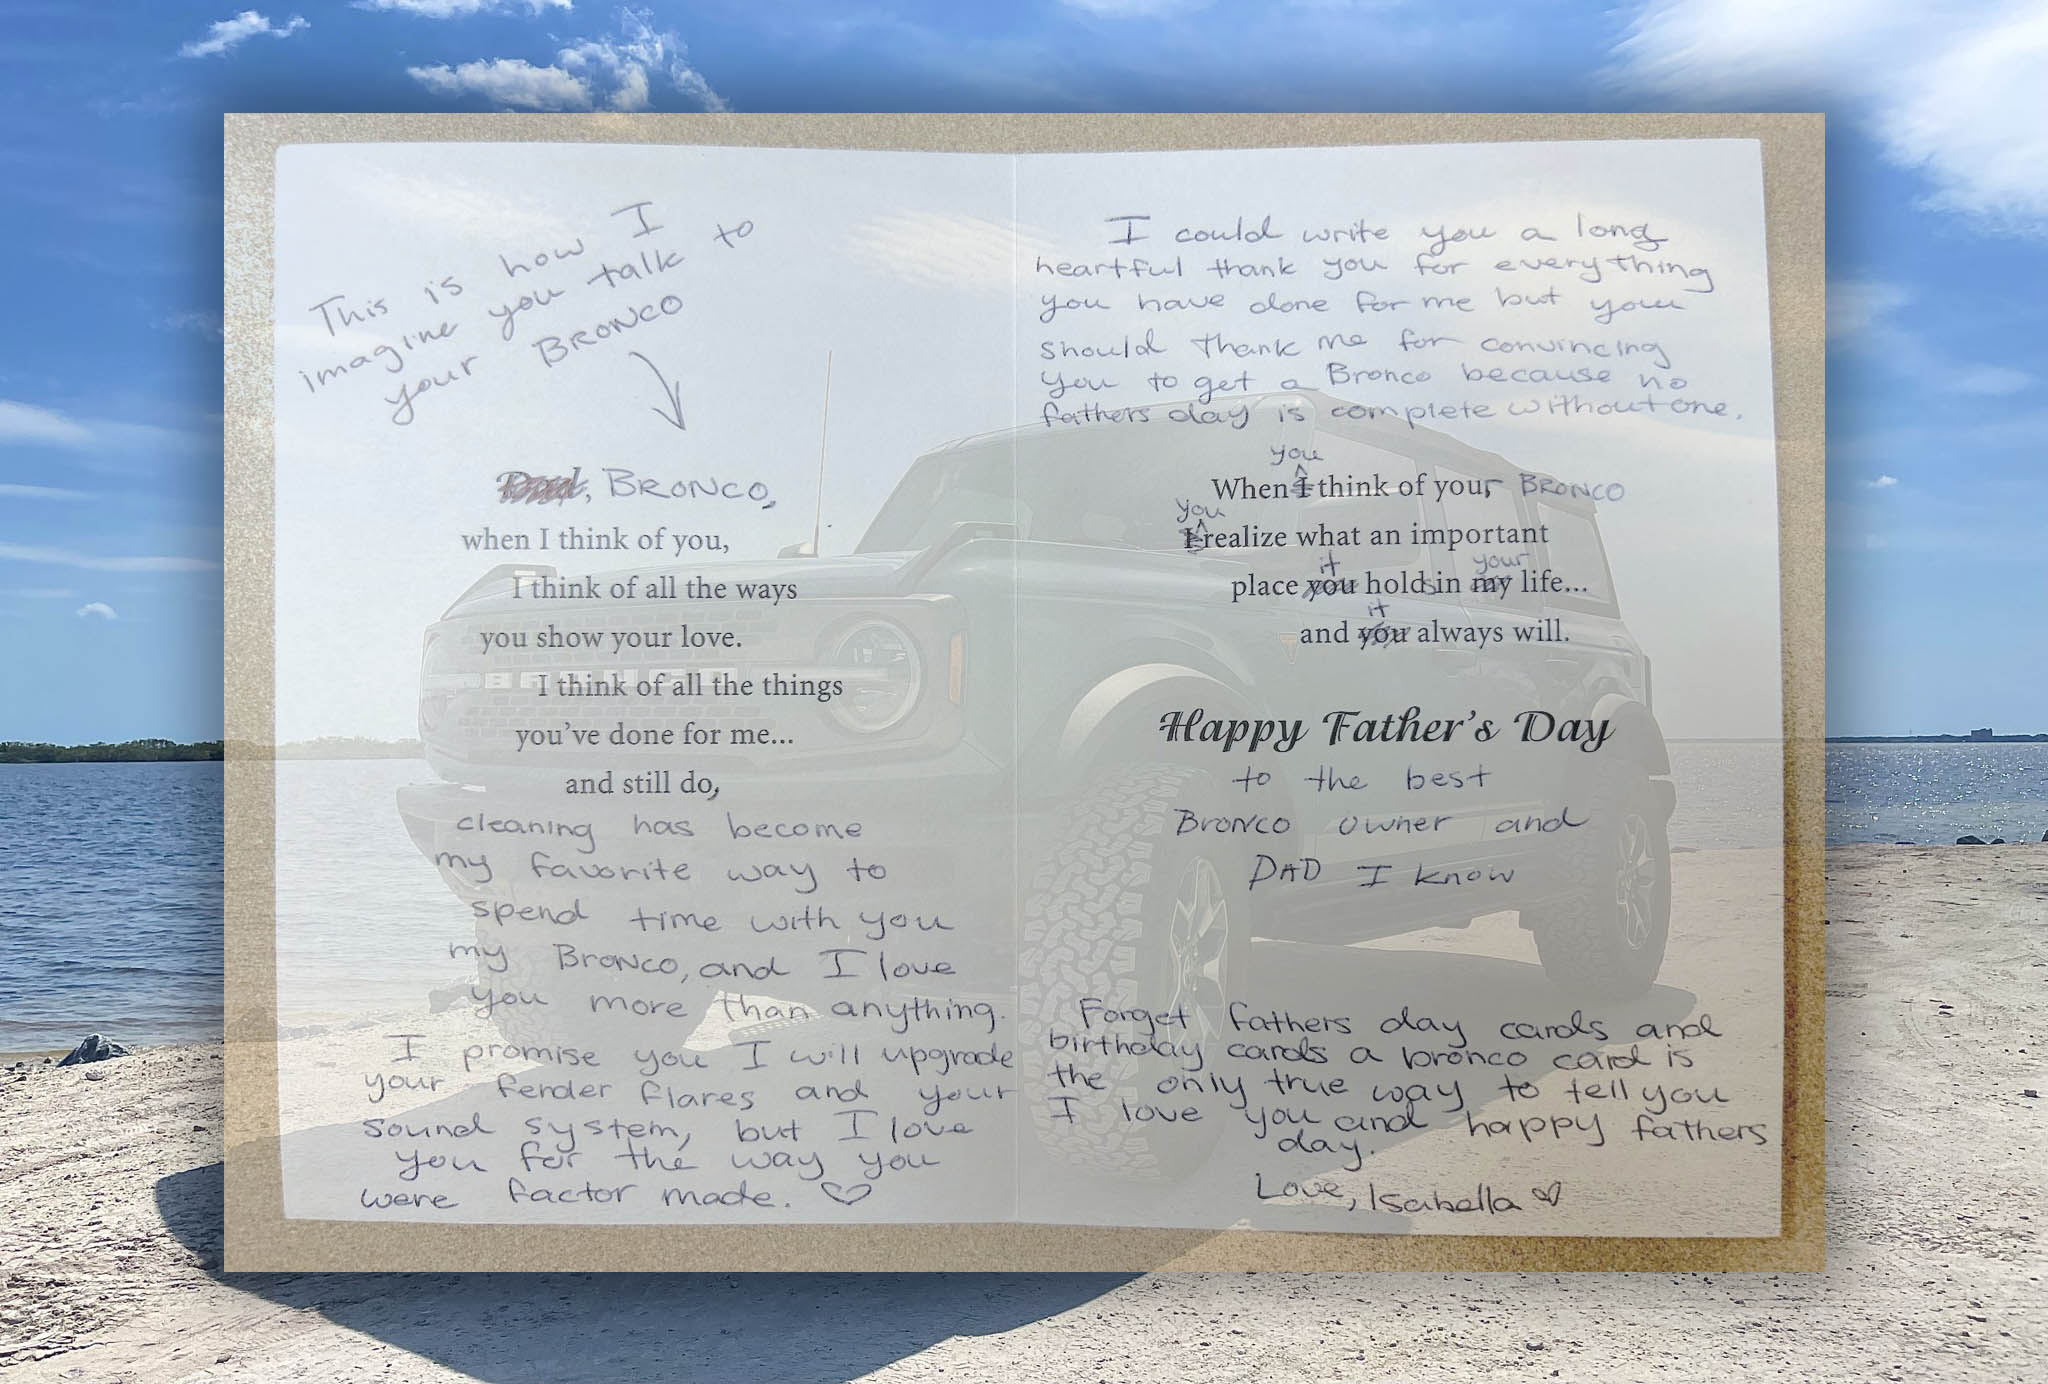 This is how I
imagine you talk to
your BRONCO
Dad, BRONCO,
when I think of you,
I think of all the ways
you show your love.
I think of all the things
you've done for me...
and still do,
cleaning has become
my favorite way to
spend time with you
my Bronco, and I love
you more than anything.
I promise you I will upgrade
your fender flares and your
sound system, but I love
you for the way you
were factor made. ♡
I could write you a long
heartful thank you for everything
you have done for me but you
should thank me for convincing
you to get a Bronco because no
fathers day is complete without one.
you
When I think of your BRONCO
you
I realize what an important
it your
place you holds in my life...
it
and you always will.
Happy Father's Day
to the best
Bronco owner and
DAD I know
Forget fathers day cards and
birthday cards a bronco card is
the only true way to tell you
I love you and happy fathers
day.
Love, Isabella ♡
BRONCO